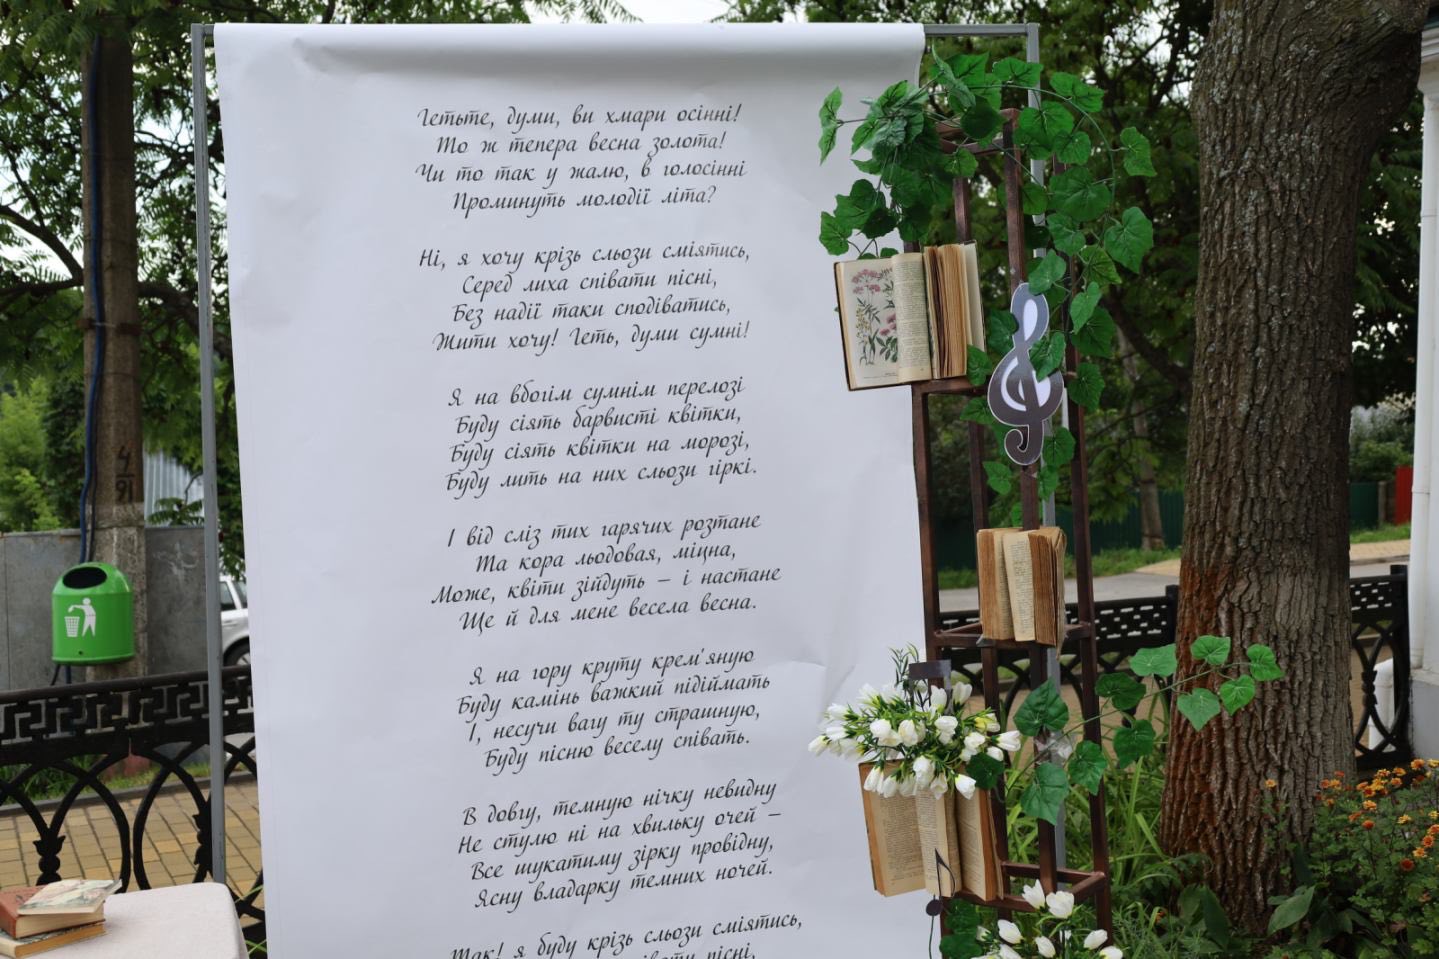 Гетьте, думи, ви хмари осінні!
То ж тепера весна золота!
Чи то так у жалю, в голосінні
Проминуть молодії літа?
Ні, я хочу крізь сльози сміятись,
Серед лиха співати пісні,
Без надії таки сподіватись,
Жити хочу! Геть, думи сумні!
Я на вбогім сумнім перелозі
Буду сіять барвисті квітки,
Буду сіять квітки на морозі,
Буду лить на них сльози гіркі.
І від сліз тих гарячих розтане
Та кора льодовая, міцна,
Може, квіти зійдуть – і настане
Ще й для мене весела весна.
Я на гору круту крем'яную
Буду камінь важкий підіймать
І, несучи вагу ту страшную,
Буду пісню веселу співать.
В довгу, темную нічку невидну
Не стулю ні на хвильку очей –
Все шукатиму зірку провідну,
Ясну владарку темних ночей.
Так! я буду крізь сльози сміятись,
співати пісні,
4
91